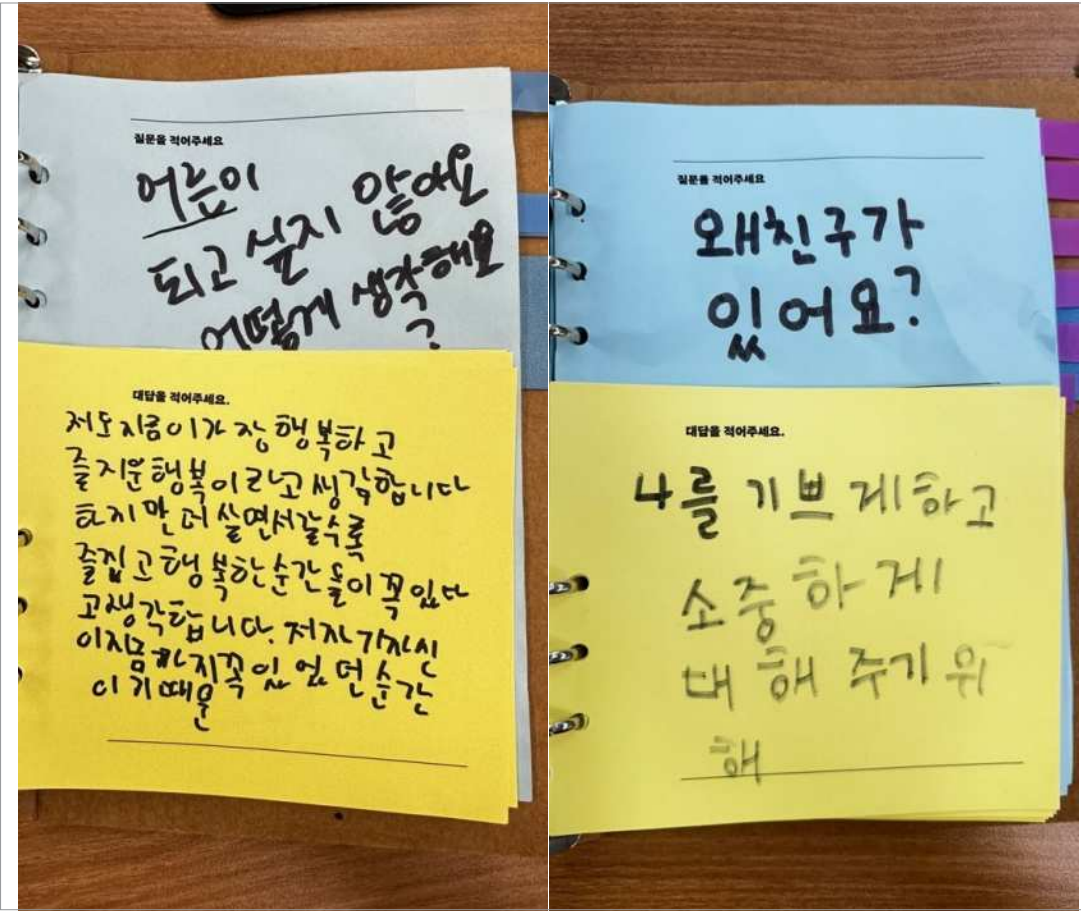 질문을 적어주세요
어른이
되고 싶지 않아요
어떻게 생각해요
?
대답을 적어주세요.
저도 지금이 가장 행복하고
즐거운 행복이라고 생각합니다
하지만 더 살면서 갈수록
즐겁고 행복한 순간들이 꼭 있다
고 생각합니다.
이지금까지 꼭 있었던 순간
이기 때문
질문를 적어주세요
왜 친구가
있어요?
대답을 적어주세요.
나를 기쁘게 하고
소중하게
대해 주기 위
해